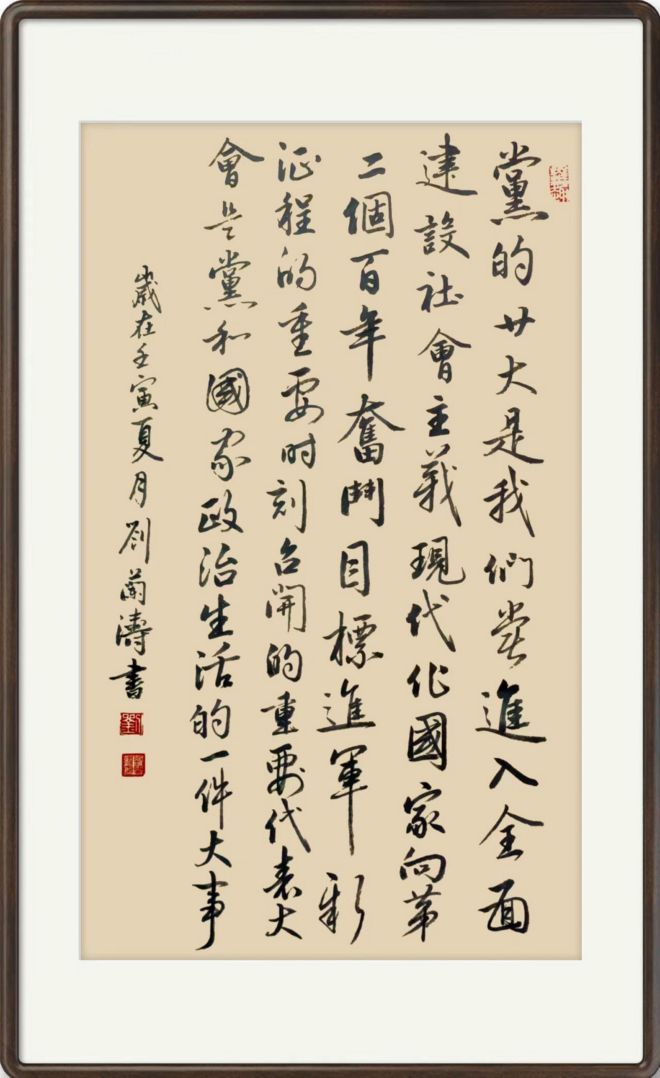 黨的廿大是我們党進入全面
建設社會主義現代化國家向第
二個百年奮鬥目標進軍新
征程的重要时刻召開的重要代表大
會是黨和國家政治生活的一件大事
歲在壬寅夏月劉蘭濤書